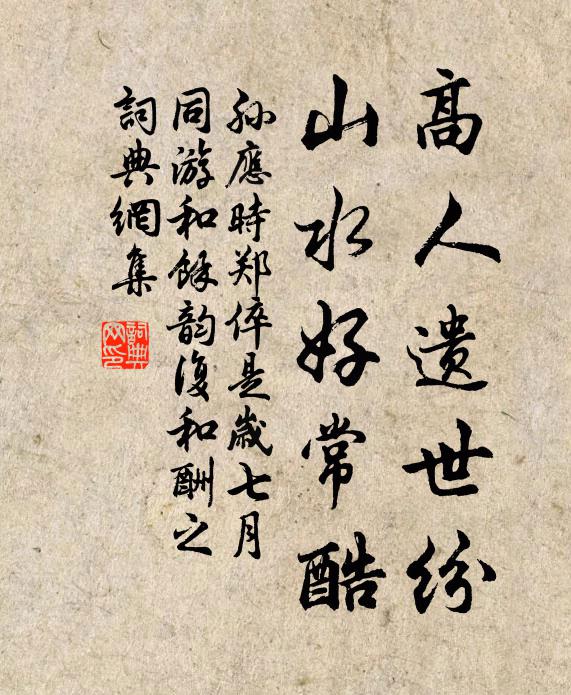 高人遗世纷
山水好常酷
孙應時郑倅是歲七月
同游和餘韵復和酬之
詞典網集
詞典网印